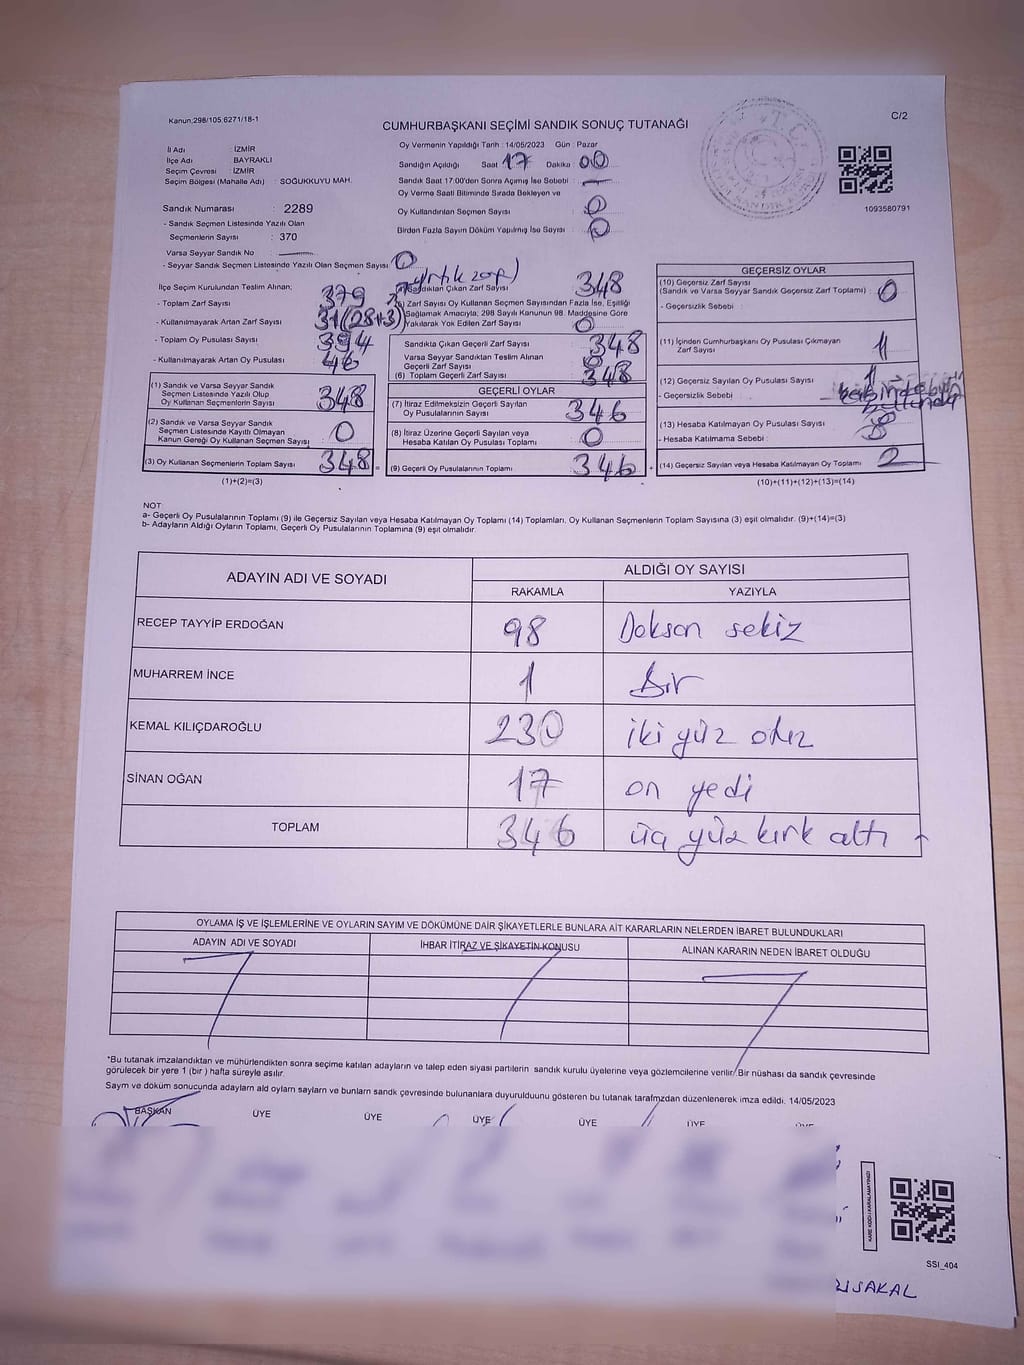 Kanun,298/105 6271/18-1
C/2
CUMHURBAŞKANI SEÇİMİ SANDIK SONUÇ TUTANAĞI
İl Adı : İZMİR
İlçe Adı : BAYRAKLI
Seçim Çevresi : İZMİR
Seçim Bölgesi (Mahalle Adı) : SOĞUKKUYU MAH.
Sandık Numarası : 2289
- Sandık Seçmen Listesinde Yazılı Olan
Seçmenlerin Sayısı : 370
Varsa Seyyar Sandık No
- Seyyar Sandık Seçmen Listesinde Yazılı Olan Seçmen Sayısı : 0
Oy Vermenin Yapıldığı Tarih : 14/05/2023 Gün : Pazar
Sandığın Açıldığı Saat 17 Dakika 00
Sandık Saat 17.00'den Sonra Açımış İse Sebebi :
Oy Verme Saati Bitiminde Sırada Bekleyen ve
Oy Kullandırılan Seçmen Sayısı : 0
Birden Fazla Sayım Döküm Yapılmış İse Sayısı : 0
1093580791
İlçe Seçim Kurulundan Teslim Alınan;
- Toplam Zarf Sayısı 379
- Kullanılmayarak Artan Zarf Sayısı 31(28+3)
- Toplam Oy Pusulası Sayısı 394
- Kullanılmayarak Artan Oy Pusulası 46
(1) Sandık ve Varsa Seyyar Sandık
Seçmen Listesinde Yazılı Olup
Oy Kullanan Seçmenlerin Sayısı 348
(2) Sandık ve Varsa Seyyar Sandık
Seçmen Listesinde Kayıtlı Olmayan
Kanun Gereği Oy Kullanan Seçmen Sayısı 0
(3) Oy Kullanan Seçmenlerin Toplam Sayısı 348 =
(1)+(2)=(3)
yırtık zarf)
Sandıktan Çıkan Zarf Sayısı 348
Zarf Sayısı Oy Kullanan Seçmen Sayısından Fazla İse, Eşitliği
Sağlamak Amacıyla, 298 Sayılı Kanunun 98. Maddesine Göre
Yakılarak Yok Edilen Zarf Sayısı 0
Sandıkta Çıkan Geçerli Zarf Sayısı 348
Varsa Seyyar Sandıktan Teslim Alınan
Geçerli Zarf Sayısı 0
(6) Toplam Geçerli Zarf Sayısı 348
GEÇERLİ OYLAR
(7) İtiraz Edilmeksizin Geçerli Sayılan
Oy Pusulalarının Sayısı 346
(8) İtiraz Üzerine Geçerli Sayılan veya
Hesaba Katılan Oy Pusulası Toplamı 0
(9) Geçerli Oy Pusulalarının Toplamı 346 +
GEÇERSİZ OYLAR
(10) Geçersiz Zarf Sayısı
(Sandık ve Varsa Seyyar Sandık Geçersiz Zarf Toplamı) : 0
- Geçersizlik Sebebi :
(11) İçinden Cumhurbaşkanı Oy Pusulası Çıkmayan
Zarf Sayısı 1
(12) Geçersiz Sayılan Oy Pusulası Sayısı : 1
- Geçersizlik Sebebi :
(13) Hesaba Katılmayan Oy Pusulası Sayısı :
- Hesaba Katılmama Sebebi :
(14) Geçersiz Sayılan veya Hesaba Katılmayan Oy Toplamı 2
(10)+(11)+(12)+(13)=(14)
NOT:
a- Geçerli Oy Pusulalarının Toplamı (9) ile Geçersiz Sayılan veya Hesaba Katılmayan Oy Toplamı (14) Toplamları, Oy Kullanan Seçmenlerin Toplam Sayısına (3) eşit olmalıdır. (9)+(14)=(3)
b- Adayların Aldığı Oyların Toplamı, Geçerli Oy Pusulalarının Toplamına (9) eşit olmalıdır.
ADAYIN ADI VE SOYADI ALDIĞI OY SAYISI
RAKAMLA YAZIYLA
RECEP TAYYİP ERDOĞAN 98 Doksan sekiz
MUHARREM İNCE 1 Bir
KEMAL KILIÇDAROĞLU 230 iki yüz otuz
SİNAN OĞAN 17 on yedi
TOPLAM 346 üç yüz kırk altı
OYLAMA İŞ VE İŞLEMLERİNE VE OYLARIN SAYIM VE DÖKÜMÜNE DAİR ŞİKAYETLERLE BUNLARA AİT KARARLARIN NELERDEN İBARET BULUNDUKLARI
ADAYIN ADI VE SOYADI İHBAR İTİRAZ VE ŞİKAYETİN KONUSU ALINAN KARARIN NEDEN İBARET OLDUĞU
*Bu tutanak imzalandıktan ve mühürlendikten sonra seçime katılan adayların ve talep eden siyasi partilerin sandık kurulu üyelerine veya gözlemcilerine verilir. Bir nüshası da sandık çevresinde
görülecek bir yere 1 (bir ) hafta süreyle asılır.
Sayım ve döküm sonucunda adayların ald oyların sayların ve bunların sandk çevresinde bulunanlara duyurulduunu gösteren bu tutanak tarafmzdan düzenlenerek imza edildi. 14/05/2023
BAŞKAN ÜYE ÜYE ÜYE ÜYE ÜYE
KARE KODU KARALAMAYINIZ!
SSI_404